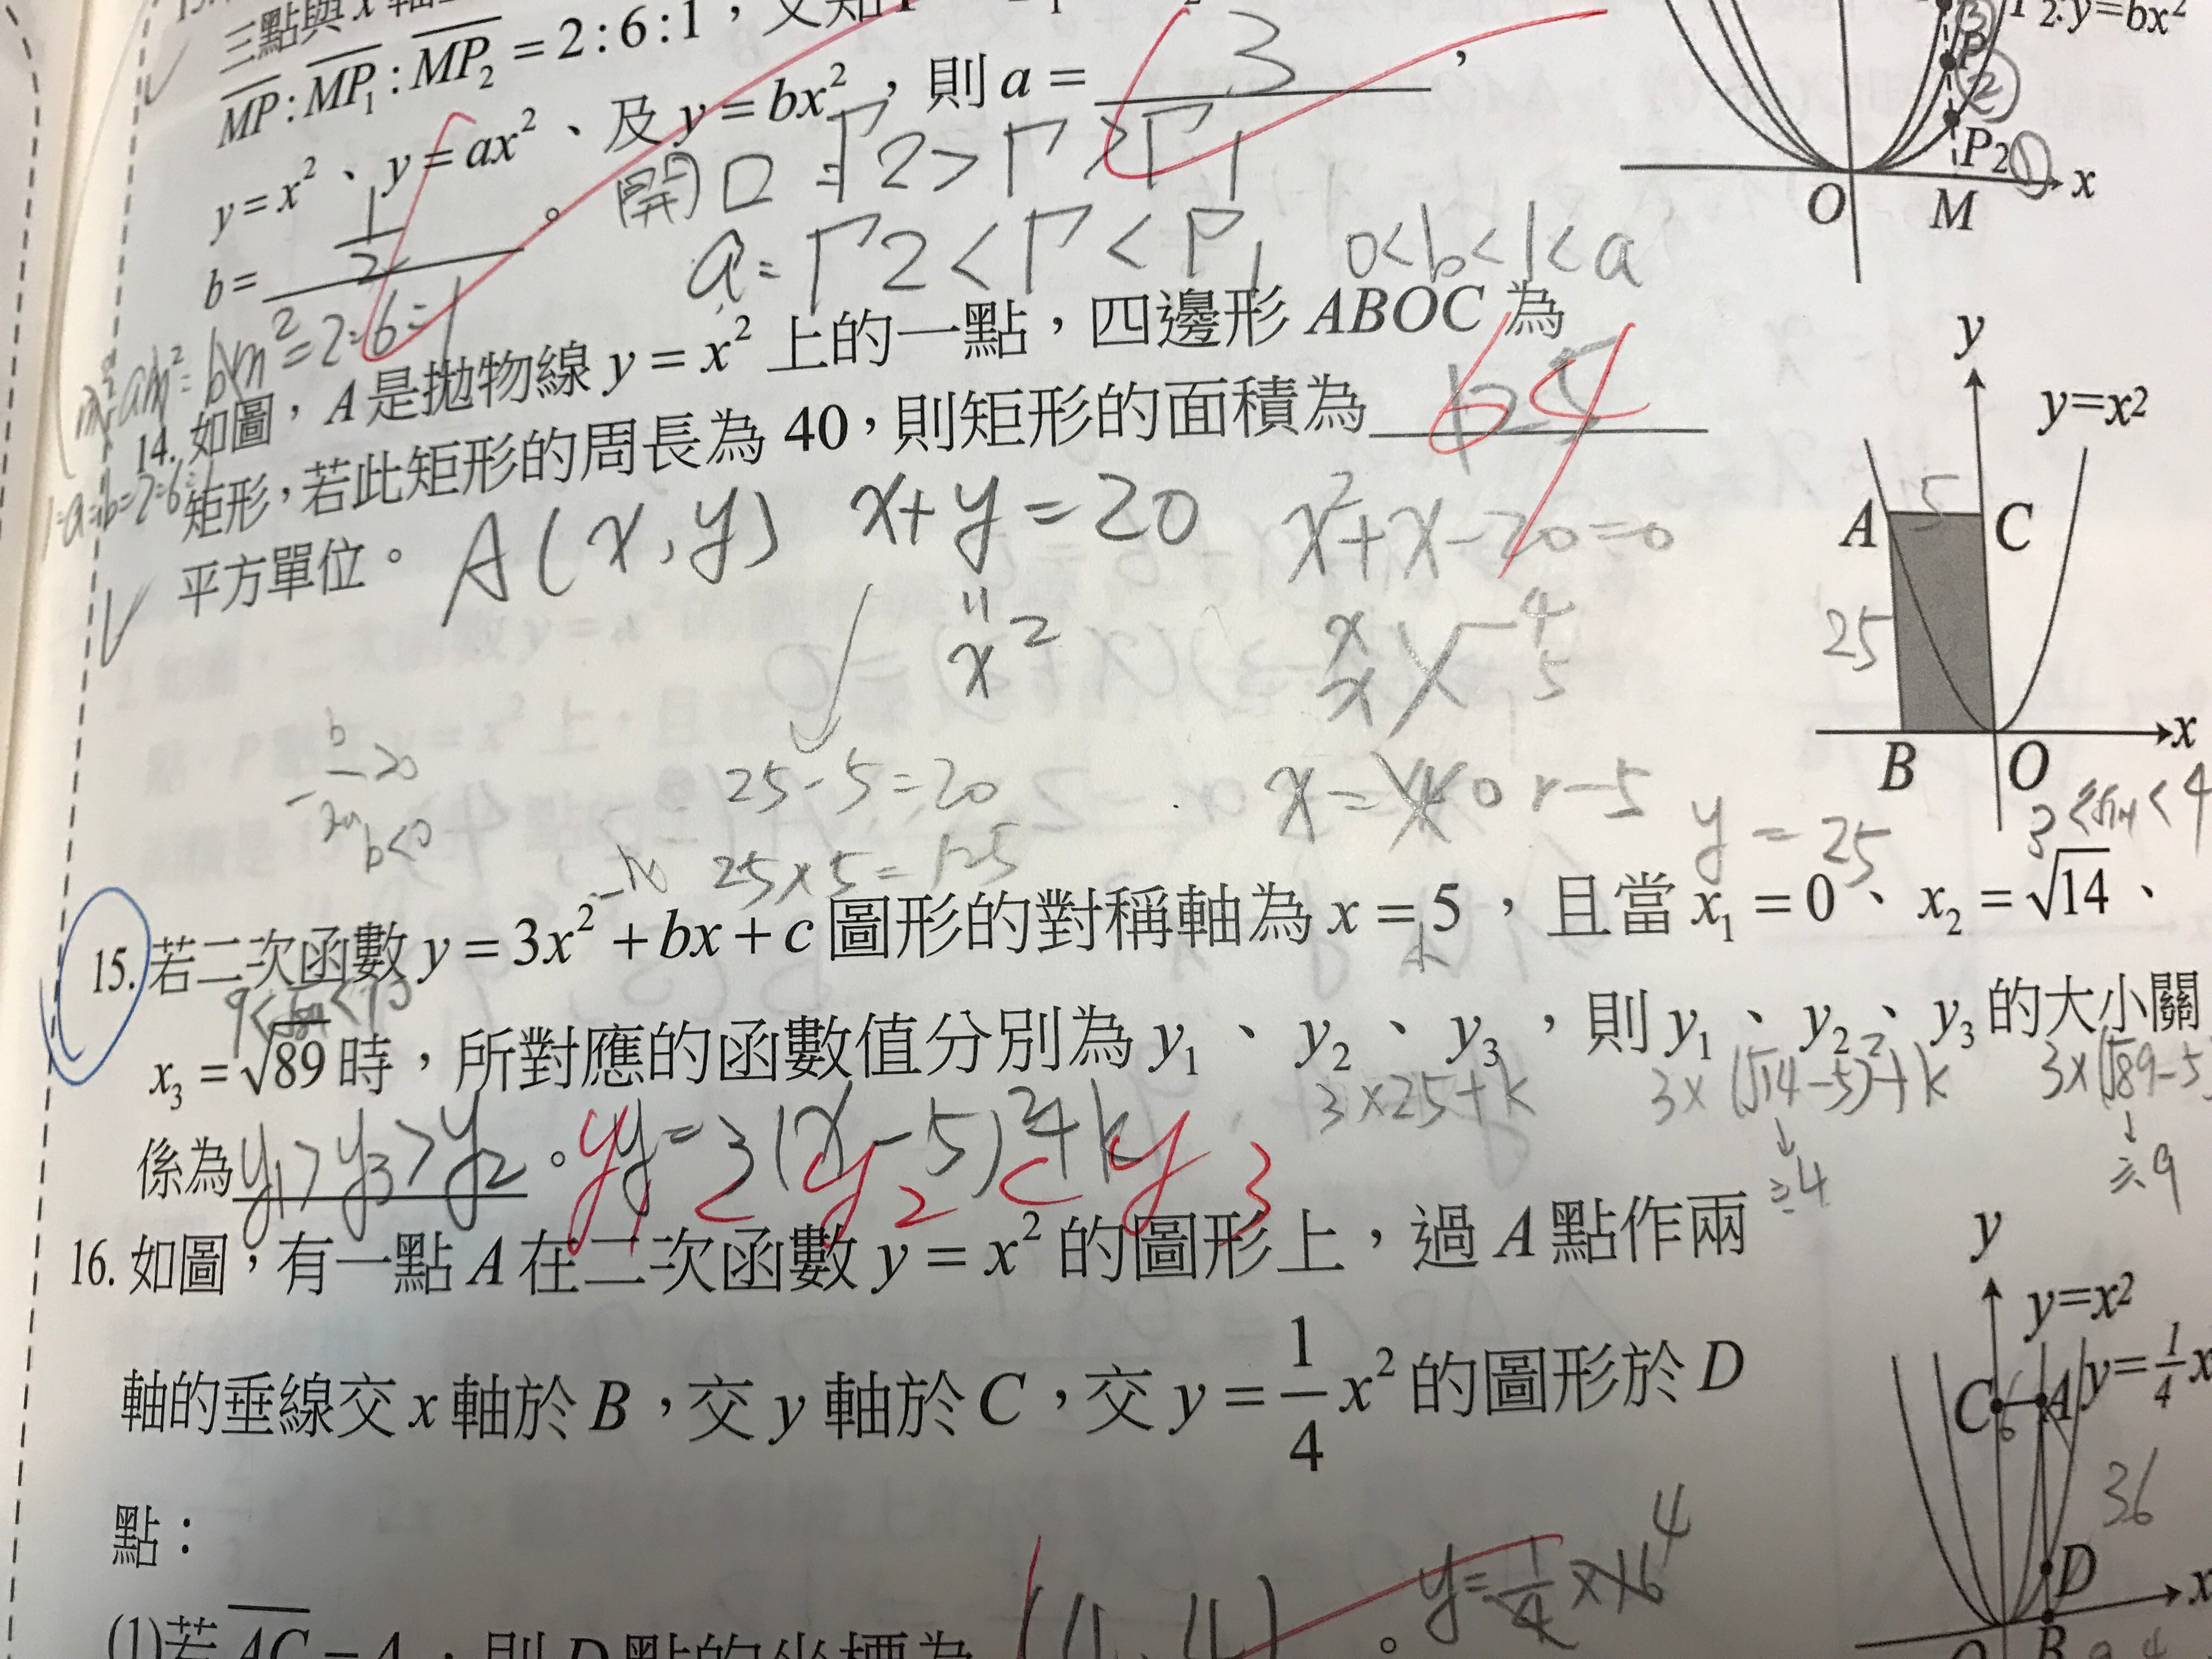 三點與x軸
MP : MP₁ : MP₂ = 2 : 6 : 1，又知
y = x²、y = ax²、及 y = bx²，則 a = 3，
b = 1/2。
開口 = Γ2 > Γ > Γ1
a = Γ2 < Γ < Γ1 0<b<1<a
m² : am² : bm² = 2:6:1
1:a:b=2:6:1
Γ₂:y=bx²
③
P
②
P₂ ①
O M x
14. 如圖，A 是拋物線 y = x² 上的一點，四邊形 ABOC 為
矩形，若此矩形的周長為 40，則矩形的面積為 125 64
平方單位。
A(x,y) x+y=20 x²+x-20=0
=
x²
x -4
x 5
25-5=20
25×5=125
x=4 or -5
y=25
y
y=x²
A 5 C
25
B O x
-b/2a>0
b<0
3<√14<4
15. 若二次函數 y = 3x² + bx + c 圖形的對稱軸為 x = 5，且當 x₁ = 0、x₂ = √14、
9<√89<10
x₃ = √89 時，所對應的函數值分別為 y₁、y₂、y₃，則 y₁、y₂、y₃ 的大小關
3×25+k 3×(√14-5)²+k 3×(√89-5
≥4 ≥9
係為 y₁>y₃>y₂。y=3(x-5)²+k
y1<y2<y3
16. 如圖，有一點 A 在二次函數 y = x² 的圖形上，過 A 點作兩
軸的垂線交 x 軸於 B，交 y 軸於 C，交 y = 1/4 x² 的圖形於 D
點：
(1)若 AC = 4，則 D 點的坐標為 (4,4)。
y=1/4×16 4
y
y=x²
y=1/4x
C 6 A
36
D
x
O B